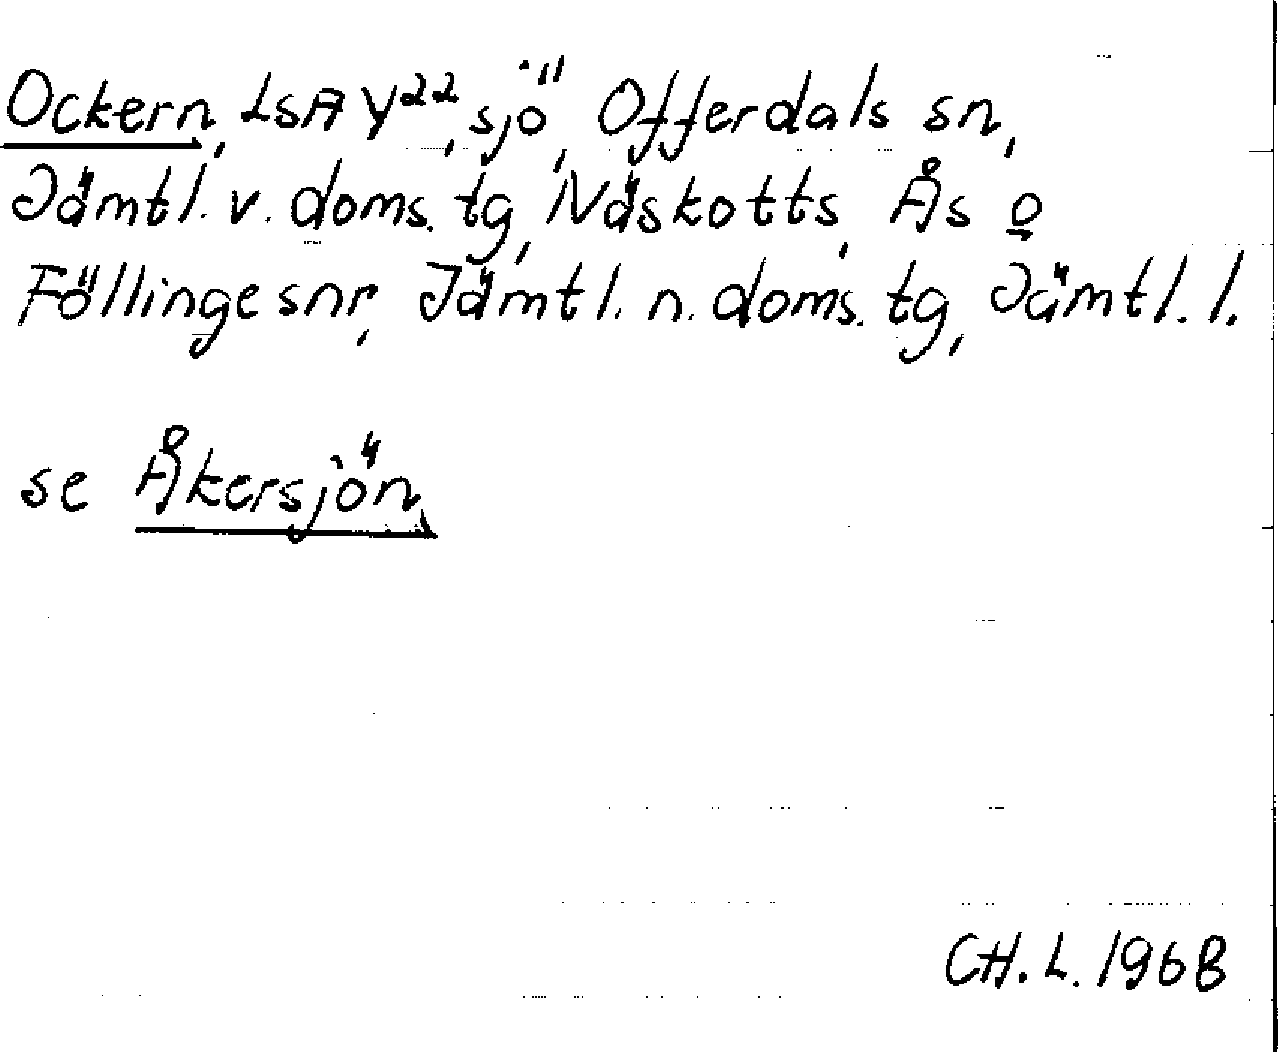 Ockern, LSA Y²², sjö, Offerdals sn,
Jämtl. v. doms. tg, Näskotts, Ås o
Föllinge snr, Jämtl. n. doms. tg, Jämtl. l.
se Åkersjön
CH. L. 1968